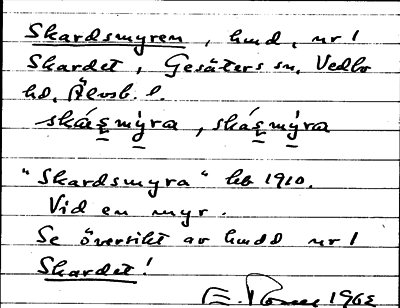 Skardsmyren, hmd, nr 1
Skardet, Gesäters sn, Vedbo
hd, Älvsb. l.
skásmy̆ra, skásmy̆ra
"Skardsmyra" hb 1910.
Vid en myr.
Se översikt av hmdd nr 1
Skardet!
1962